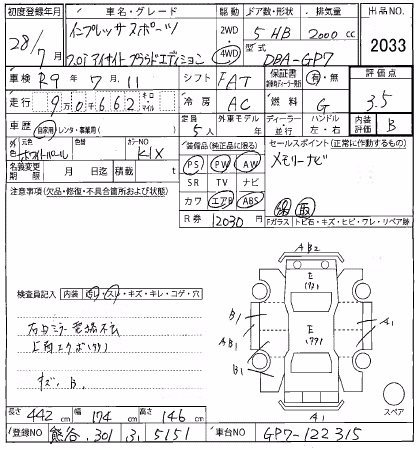 初度登録年月 車名・グレード 駆動 ドア数・形状 排気量 出品NO.
28/7月 インプレッサスポーツ 2WD 5 HB 2000 cc 2033
2.0i アイサイト プラウドエディション 4WD 型式 DBA-GP7
車検 R9年 7月 11 シフト FAT 保証書 有・無 評価点
走行 9万0千662 キロ マイル 冷房 AC 燃料 G 3.5
車歴 自家用・レンタ・事業用( ) 定員 5人 外車モデル 年 ディーラー 並行 ハンドル 左・右 内装評価 B
外色 元色 ホワイトパール 色替 カラーNO K1X
装備品(純正品に限る) セールスポイント(正常に作動するもの)
PS PW AW メモリーナビ
名義変更期限 月 日迄 積載 t
SR TV ナビ
注意事項(欠品・修復・不具合箇所および状態)
カワ エアB ABS 録 取
R券 12030円 Fガラス トビ石・キズ・ヒビ・ワレ・リペア跡
AB2
検査員記入 内装 ヨゴレ・スレ・キズ・キレ・コゲ・穴
E
B1 A1
右ミラー電格不
E
AB1
B1
キズ、B、
A1
スペア
長さ 442 cm 幅 174 cm 高さ 146 cm
登録NO 熊谷 301 5151 車台NO GP7-122315